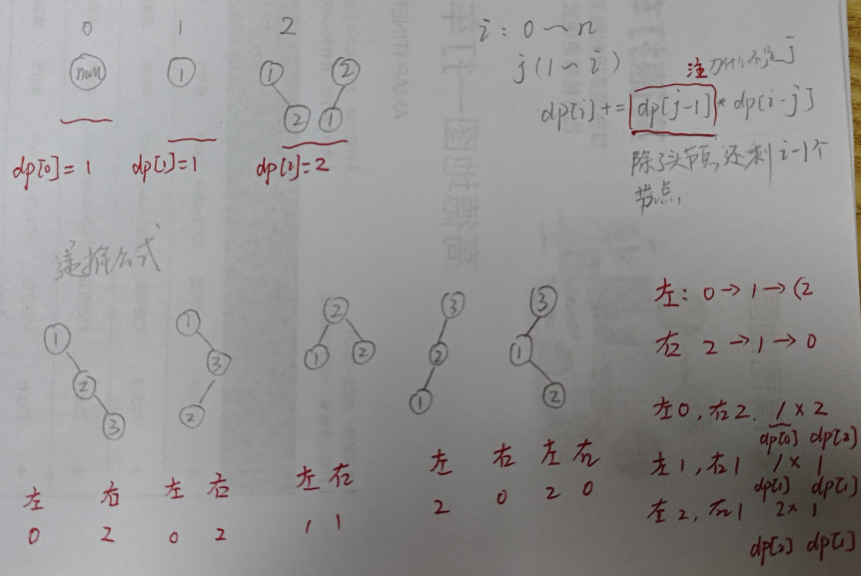 0 1 2
null 1 1 2 2 1
dp[0]=1 dp[1]=1 dp[2]=2
i: 0~n
j(1~i)
注 为什么不是j
dp[i] += dp[j-1] * dp[i-j]
除了头节点,还剩i-1个
节点,
递推公式
1 2 3
1 3 2
2 1 2
3 2 1
3 1 2
左 右 左 右 左 右 左 右 左 右
0 2 0 2 1 1 2 0 2 0
左: 0→1→(2
右 2→1→0
左0,右2. 1×2
dp[0] dp[2]
左1,右1 1×1
dp[1] dp[1]
左2,右1 2×1
dp[2] dp[1]